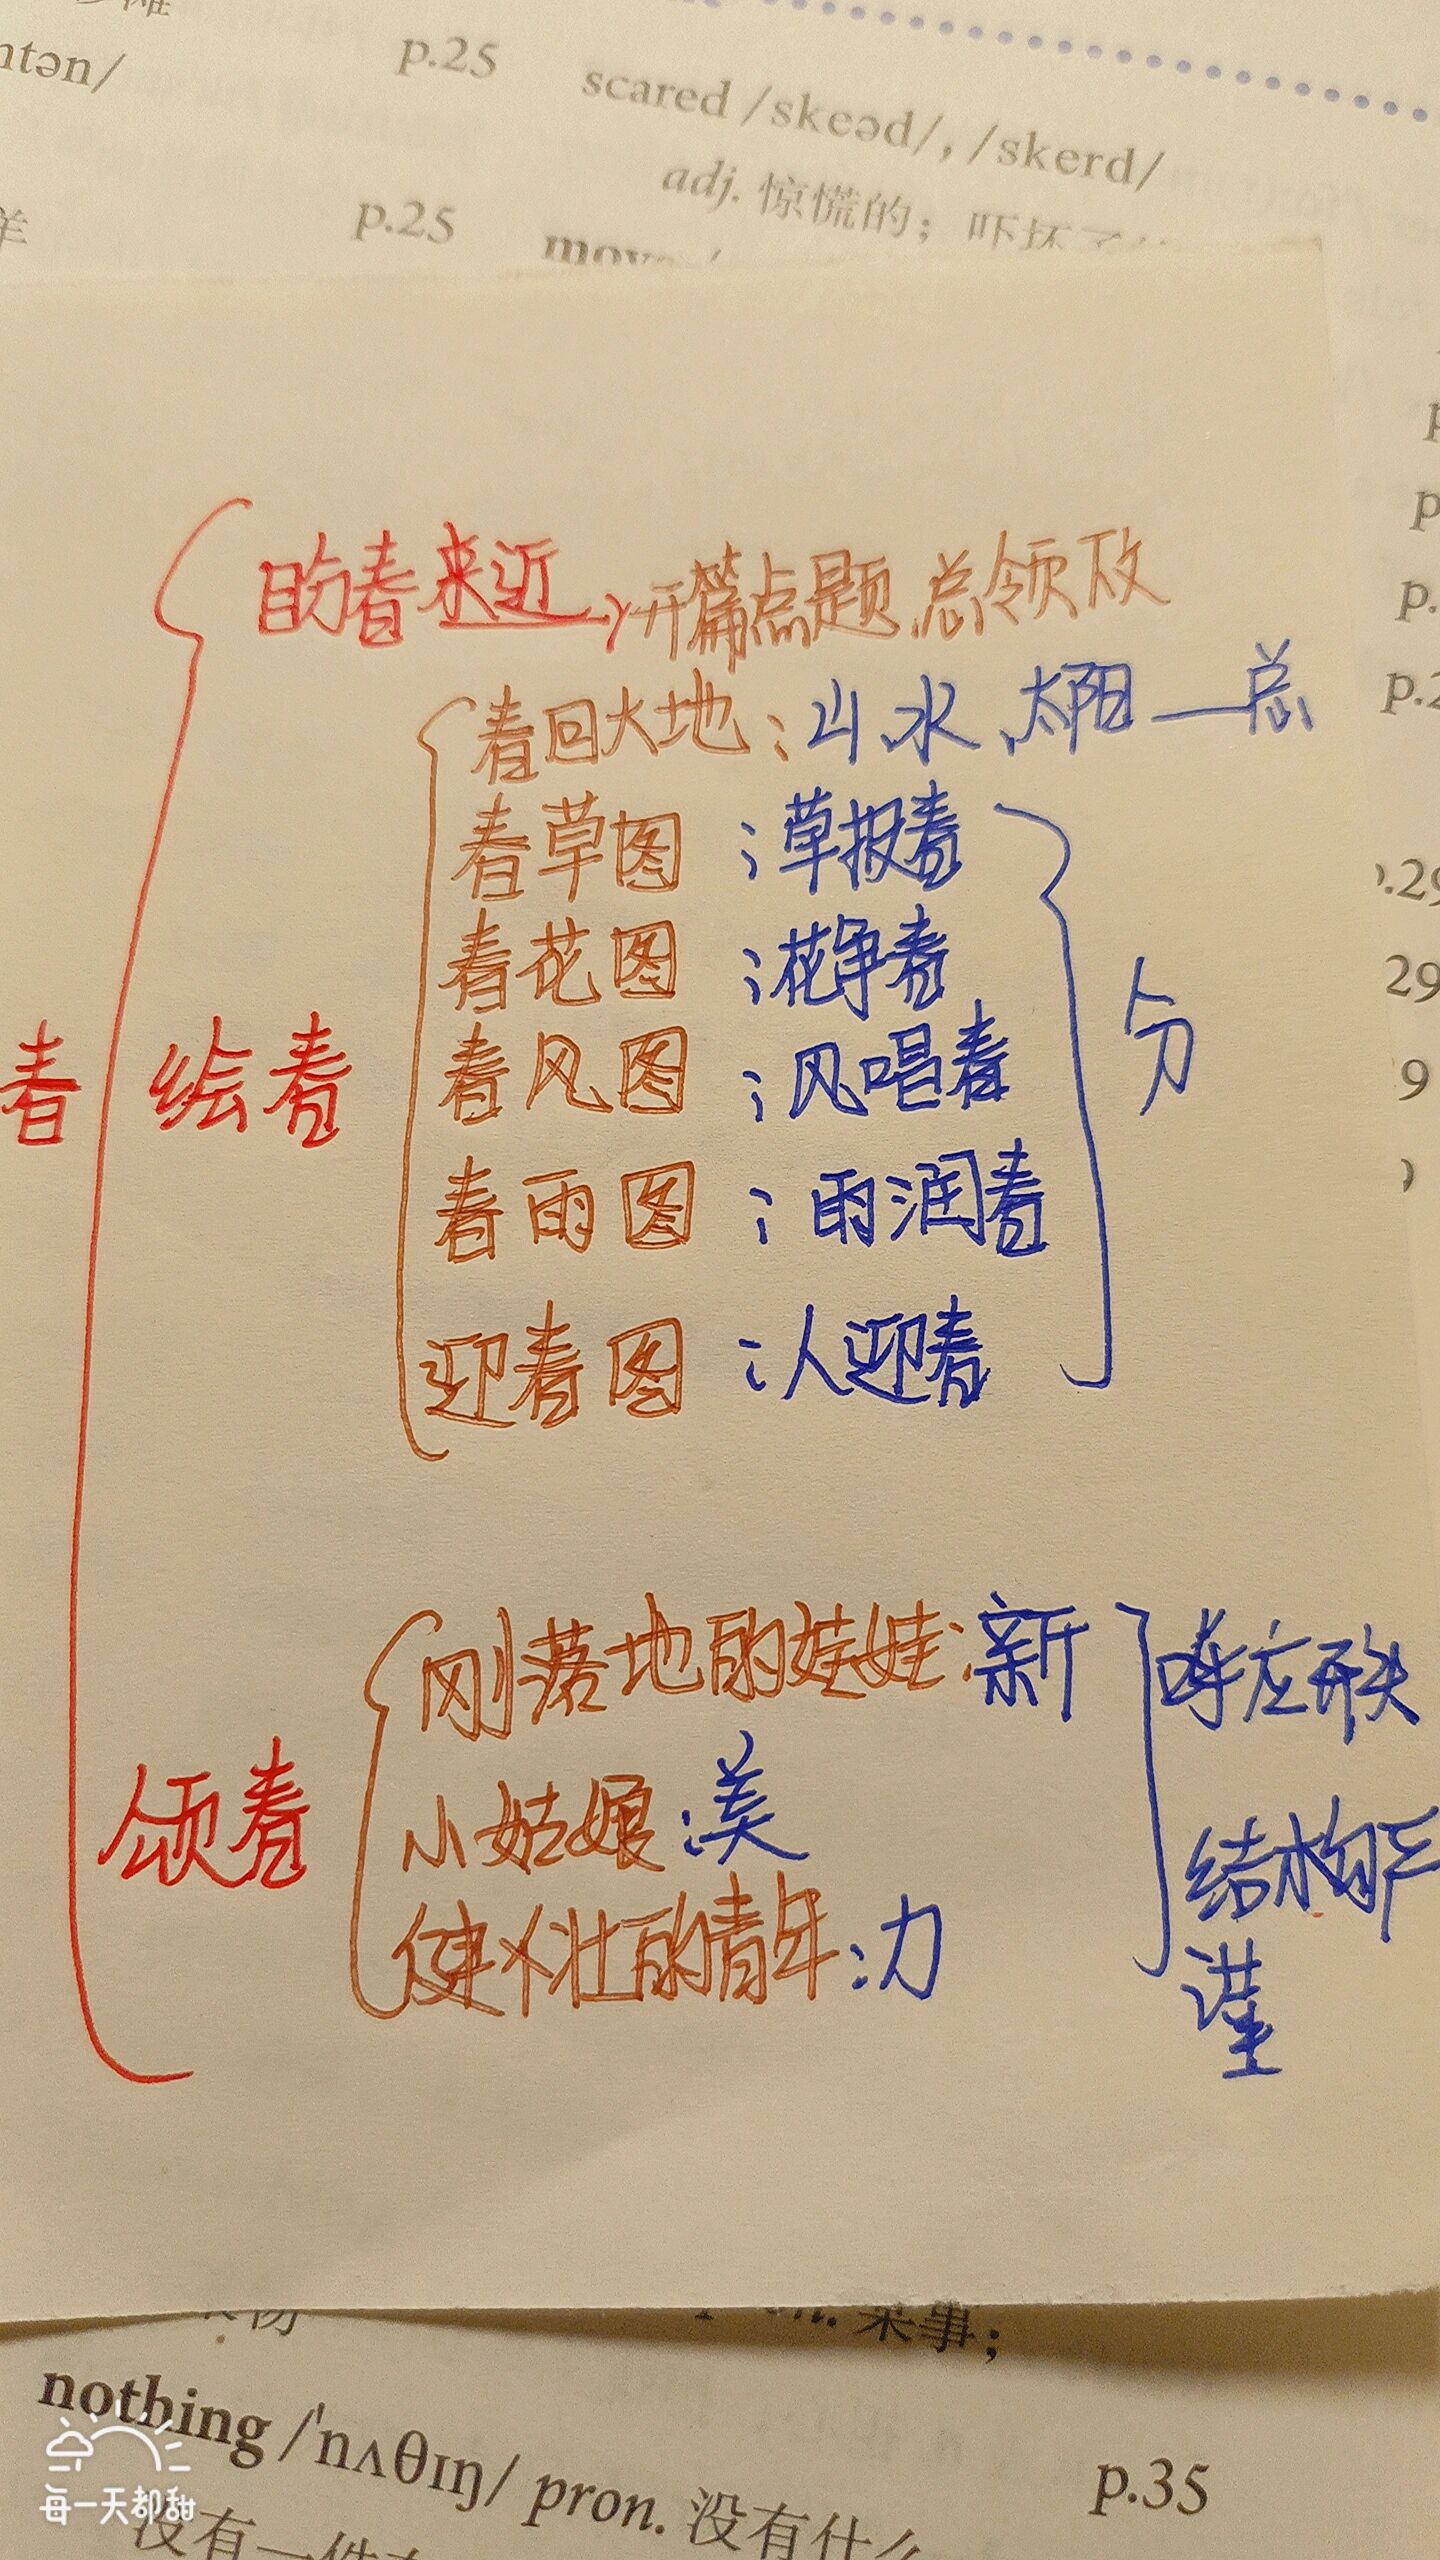 ntən/
p.25
scared /skeəd/, /skerd/
adj. 惊慌的；吓坏了
p.25
盼春来近→开篇点题总领下
春回大地：山、水、太阳——总
春草图：草报春
春花图：花争春
春风图：风唱春
春雨图：雨润春
迎春图：人迎春
分
春
绘春
颂春
刚落地的娃娃：新
小姑娘：美
健壮的青年：力
呼应开头
结构严
谨
某事；
nothing /ˈnʌθɪŋ/ pron. 没有什么
p.35
每一天都甜